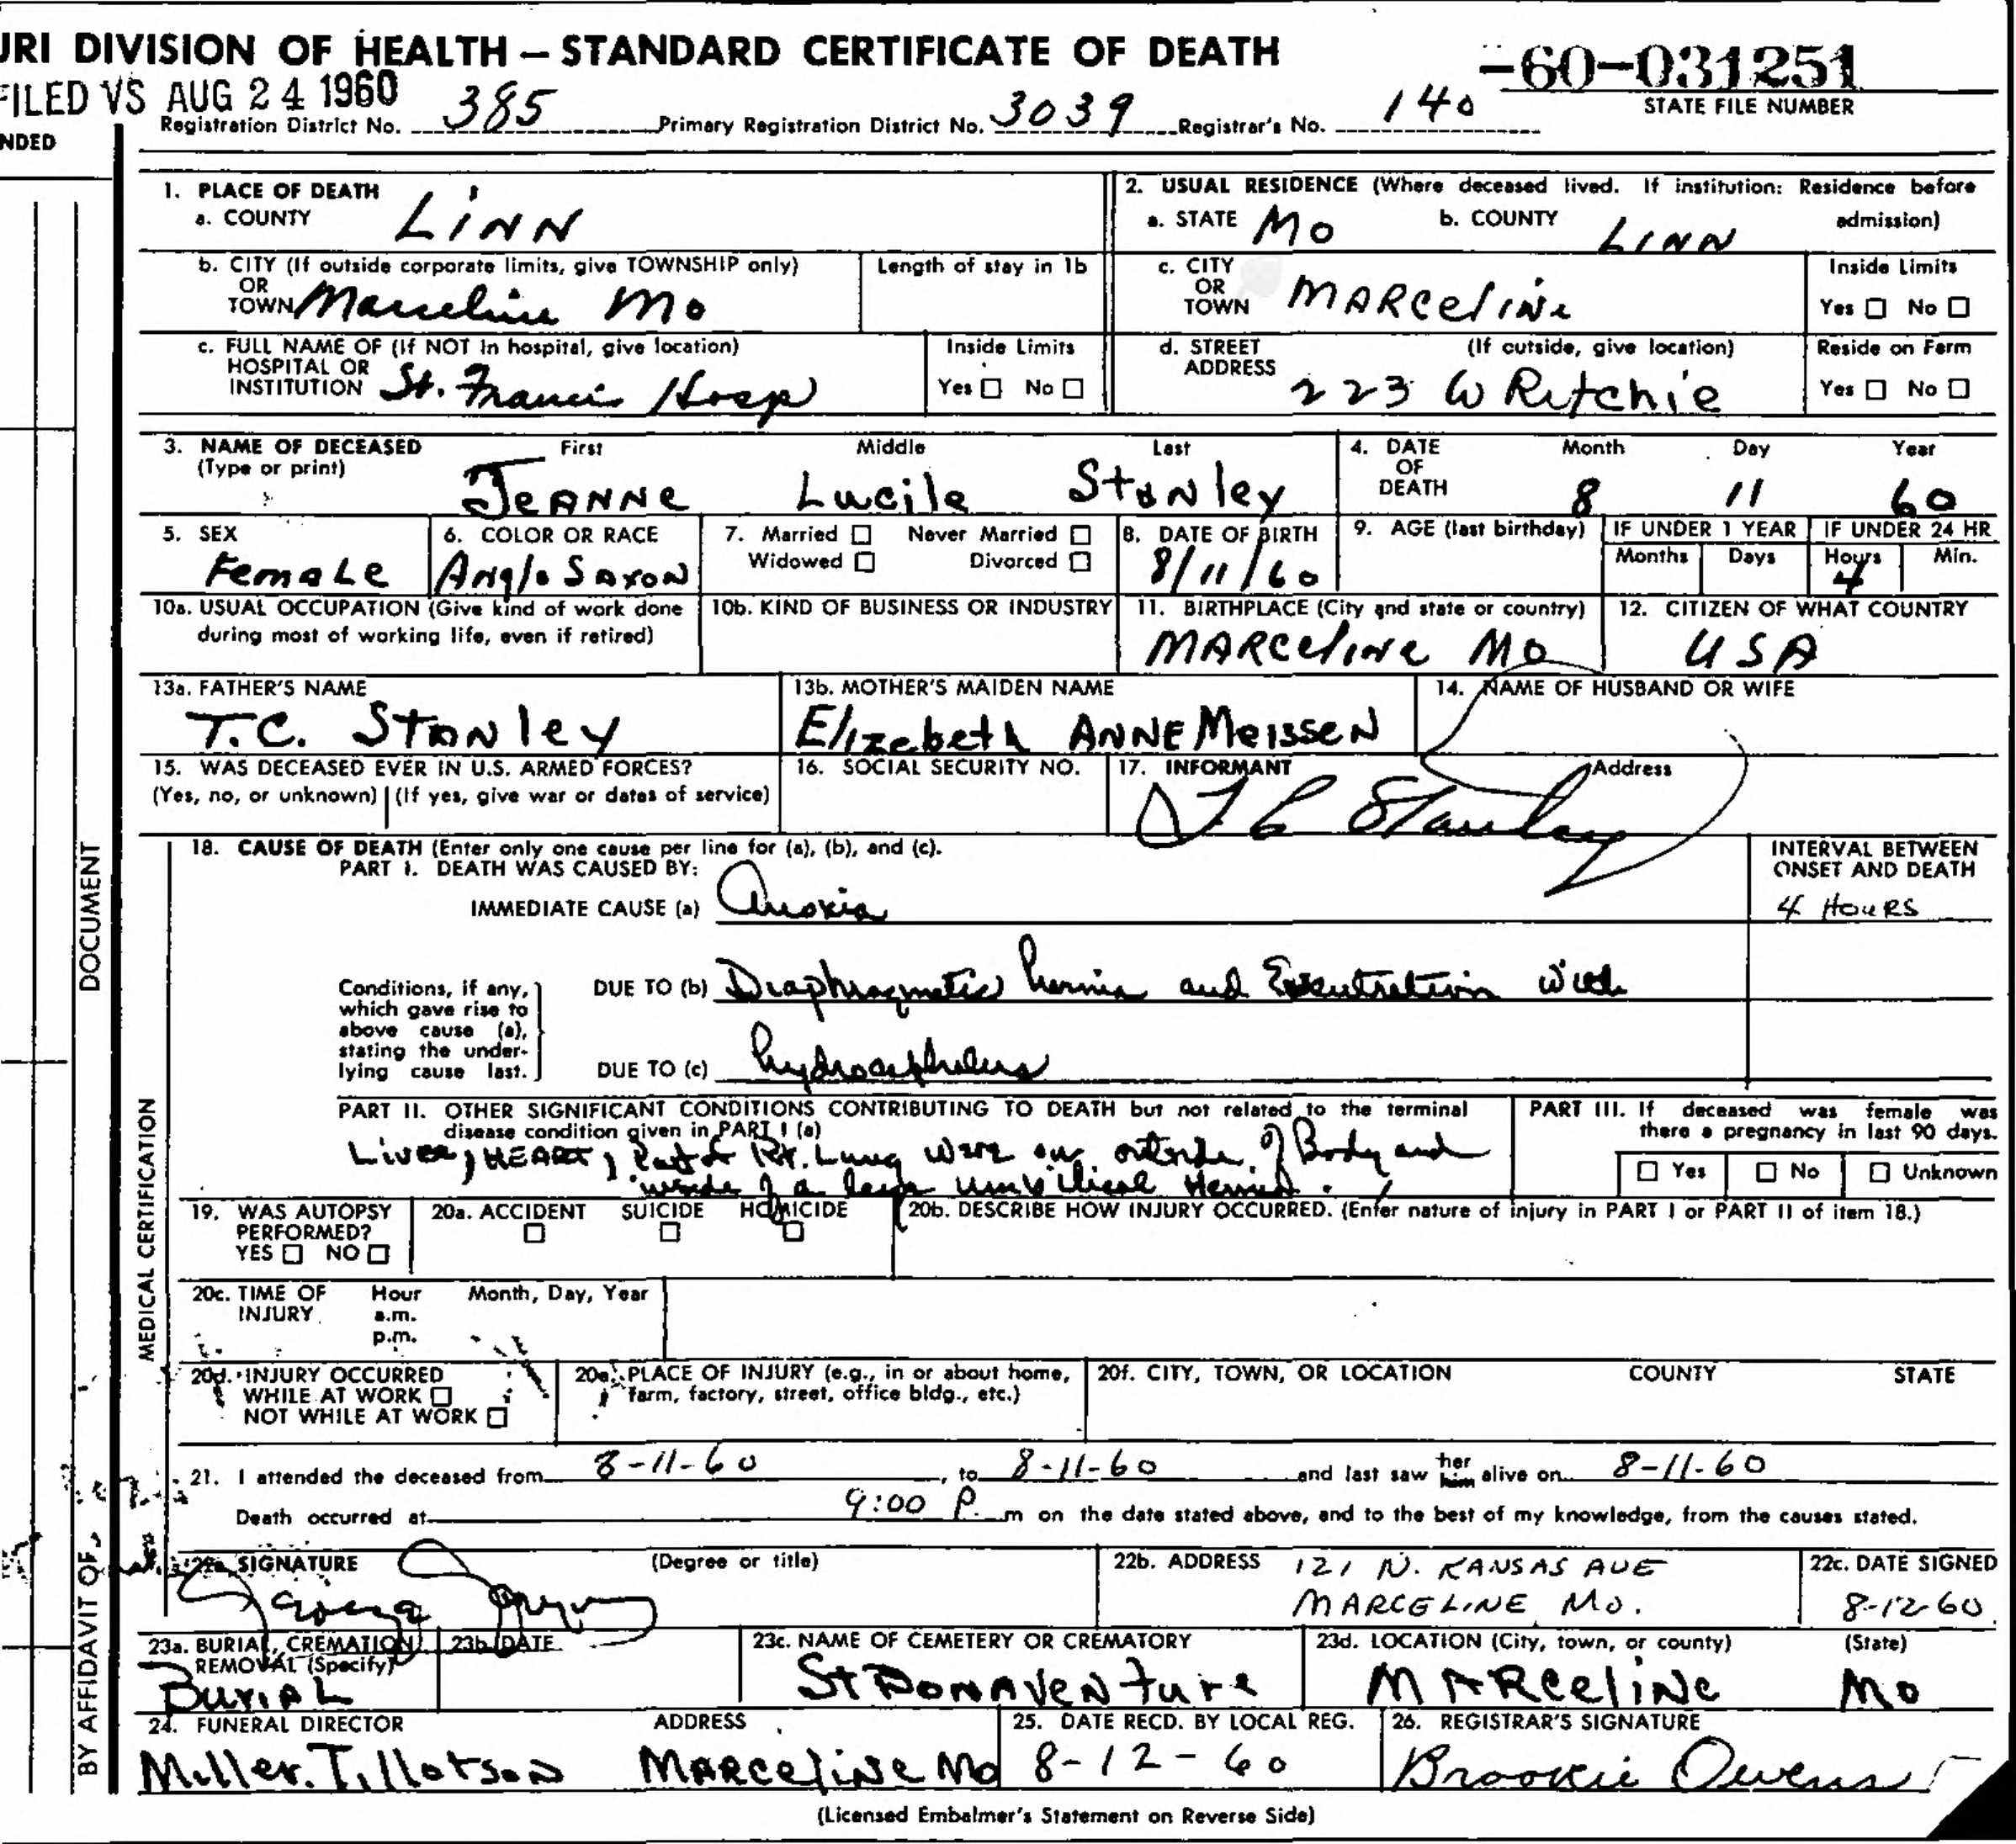 URI DIVISION OF HEALTH — STANDARD CERTIFICATE OF DEATH
-60-031251
STATE FILE NUMBER
FILED VS AUG 24 1960
Registration District No. 385 Primary Registration District No. 3039 Registrar's No. 140
NDED
1. PLACE OF DEATH
a. COUNTY LINN
2. USUAL RESIDENCE (Where deceased lived. If institution: Residence before admission)
a. STATE MO b. COUNTY LINN
b. CITY (If outside corporate limits, give TOWNSHIP only) OR TOWN Marceline Mo
Length of stay in 1b
c. CITY OR TOWN MARCeliNe
Inside Limits
Yes □ No □
c. FULL NAME OF (If NOT in hospital, give location) HOSPITAL OR INSTITUTION St. Francis Hosp
Inside Limits
Yes □ No □
d. STREET ADDRESS (If outside, give location)
223 W Ritchie
Reside on Farm
Yes □ No □
3. NAME OF DECEASED (Type or print)
First Middle Last
JEANNe Lucile StaNley
4. DATE OF DEATH
Month Day Year
8 11 60
5. SEX
FemaLe
6. COLOR OR RACE
Anglo SaxoN
7. Married □ Never Married □
Widowed □ Divorced □
8. DATE OF BIRTH
8/11/60
9. AGE (last birthday)
IF UNDER 1 YEAR
Months Days
IF UNDER 24 HR
Hours Min.
4
10a. USUAL OCCUPATION (Give kind of work done during most of working life, even if retired)
10b. KIND OF BUSINESS OR INDUSTRY
11. BIRTHPLACE (City and state or country)
MARCeliNe MO
12. CITIZEN OF WHAT COUNTRY
USA
13a. FATHER'S NAME
T.C. StaNley
13b. MOTHER'S MAIDEN NAME
Elizebeth ANNE MeisseN
14. NAME OF HUSBAND OR WIFE
15. WAS DECEASED EVER IN U.S. ARMED FORCES?
(Yes, no, or unknown) (If yes, give war or dates of service)
16. SOCIAL SECURITY NO.
17. INFORMANT Address
T C Stanley
18. CAUSE OF DEATH (Enter only one cause per line for (a), (b), and (c).
PART I. DEATH WAS CAUSED BY:
INTERVAL BETWEEN ONSET AND DEATH
IMMEDIATE CAUSE (a) Anoxia
4 HOURS
Conditions, if any, which gave rise to above cause (a), stating the underlying cause last.
DUE TO (b) Diaphragmatic hernia and with
DUE TO (c) hydrocephalus
PART II. OTHER SIGNIFICANT CONDITIONS CONTRIBUTING TO DEATH but not related to the terminal disease condition given in PART I (a)
Liver, HEART, Part of Rt. Lung were on outside of Body and
inside of a large umbilical Hernia.
PART III. If deceased was female was there a pregnancy in last 90 days.
□ Yes □ No □ Unknown
19. WAS AUTOPSY PERFORMED?
YES □ NO □
20a. ACCIDENT SUICIDE HOMICIDE
□ □ □
20b. DESCRIBE HOW INJURY OCCURRED. (Enter nature of injury in PART I or PART II of item 18.)
20c. TIME OF INJURY
Hour Month, Day, Year
a.m.
p.m.
20d. INJURY OCCURRED
WHILE AT WORK □
NOT WHILE AT WORK □
20e. PLACE OF INJURY (e.g., in or about home, farm, factory, street, office bldg., etc.)
20f. CITY, TOWN, OR LOCATION COUNTY STATE
21. I attended the deceased from 8-11-60, to 8-11-60 and last saw her him alive on 8-11-60
Death occurred at 9:00 P. m on the date stated above, and to the best of my knowledge, from the causes stated.
22a. SIGNATURE (Degree or title)
22b. ADDRESS 121 N. KANSAS AVE
MARCELINE, MO.
22c. DATE SIGNED
8-12-60
23a. BURIAL, CREMATION REMOVAL (Specify)
BuriaL
23b. DATE
23c. NAME OF CEMETERY OR CREMATORY
St BONAVeNture
23d. LOCATION (City, town, or county) (State)
MARCeliNe MO
24. FUNERAL DIRECTOR ADDRESS
Miller. TillotsoN MARCeliNe Mo
25. DATE RECD. BY LOCAL REG.
8-12-60
26. REGISTRAR'S SIGNATURE
Brookie Owens
(Licensed Embalmer's Statement on Reverse Side)
DOCUMENT
MEDICAL CERTIFICATION
BY AFFIDAVIT OF